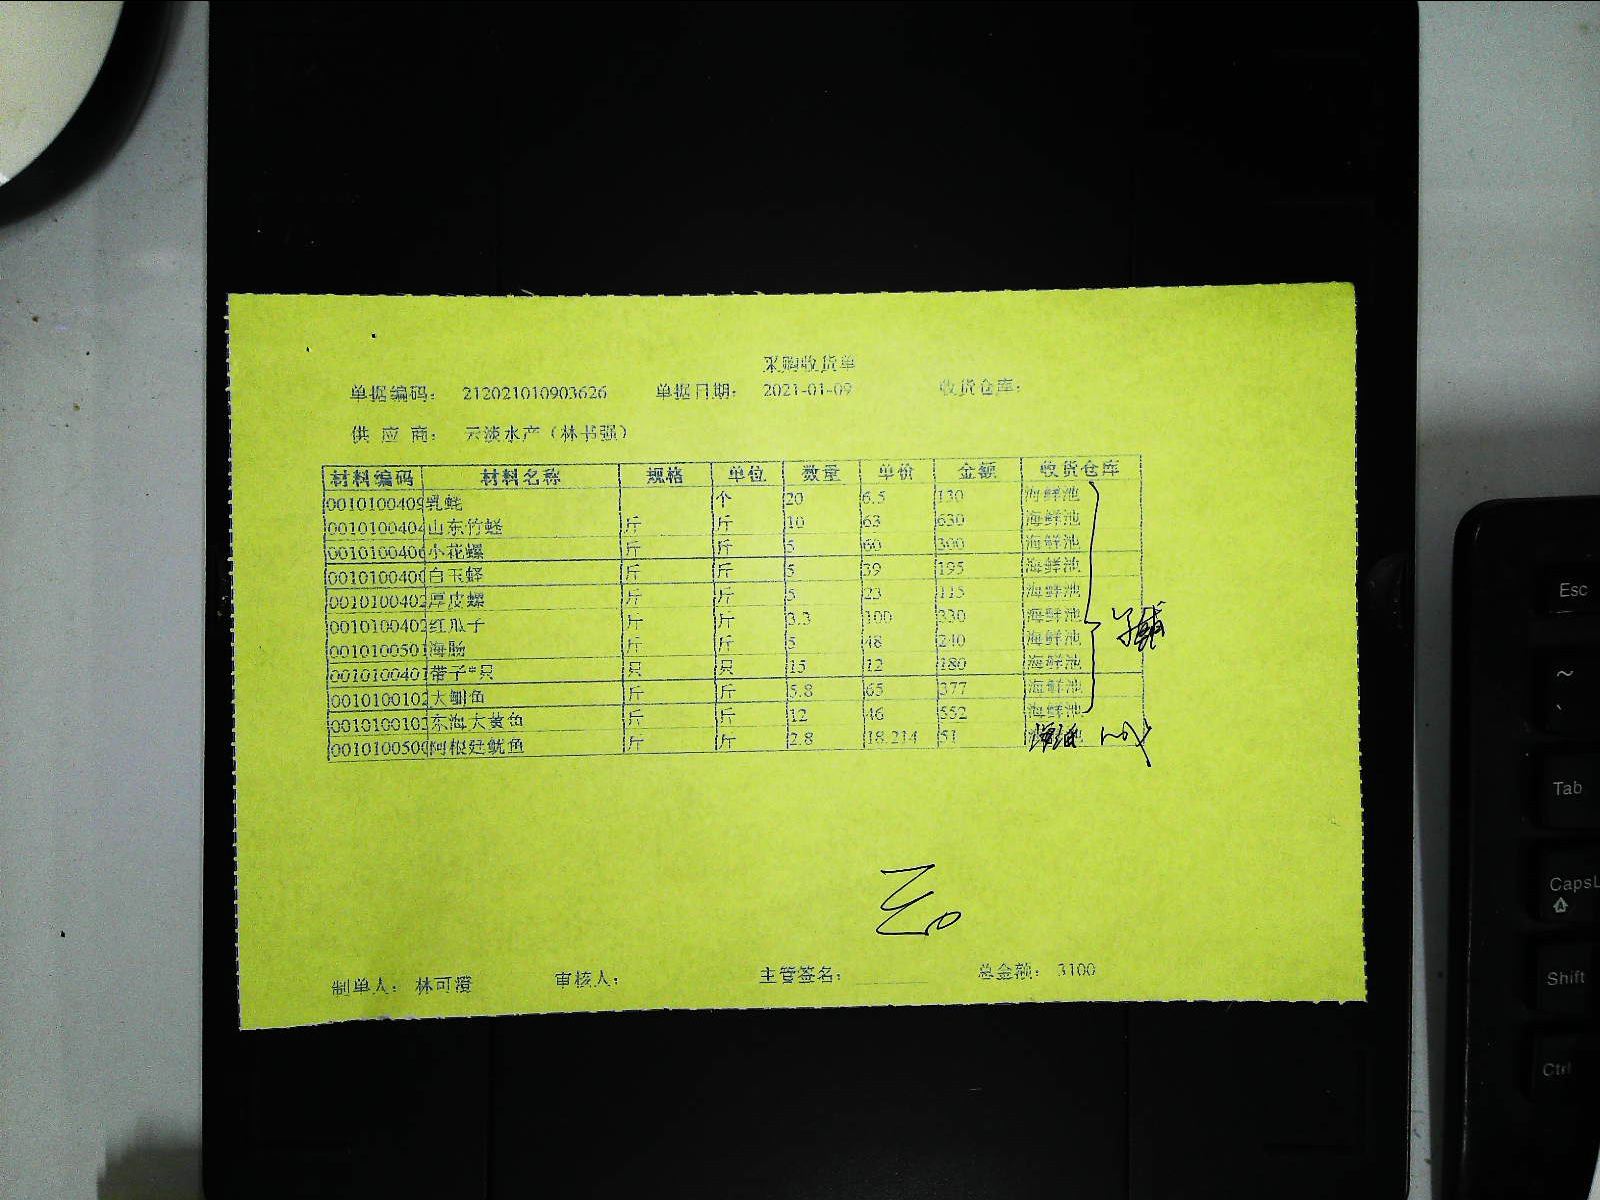 采购收货单
单据编码： 212021010903626 单据日期： 2021-01-09 收货仓库：
供 应 商： 云淡水产（林书强）
材料编码 材料名称 规格 单位 数量 单价 金额 收货仓库
0010100409 乳蚝 个 20 6.5 130 海鲜池
0010100404 山东竹蛏 斤 斤 10 63 630 海鲜池
0010100406 小花螺 斤 斤 5 60 300 海鲜池
0010100400 白玉蛏 斤 斤 5 39 195 海鲜池
0010100402 厚皮螺 斤 斤 5 23 115 海鲜池
0010100402 红瓜子 斤 斤 3.3 100 330 海鲜池
0010100501 海肠 斤 斤 5 48 240 海鲜池
0010100401 带子*只 只 只 15 12 180 海鲜池
0010100102 大鲫鱼 斤 斤 5.8 65 377 海鲜池
0010100102 东海大黄鱼 斤 斤 12 46 552 海鲜池
0010100500 阿根廷鱿鱼 斤 斤 2.8 18.214 51
制单人： 林可澄 审核人： 主管签名： 总金额： 3100
Esc
~
Tab
Caps
Shift
Ctrl